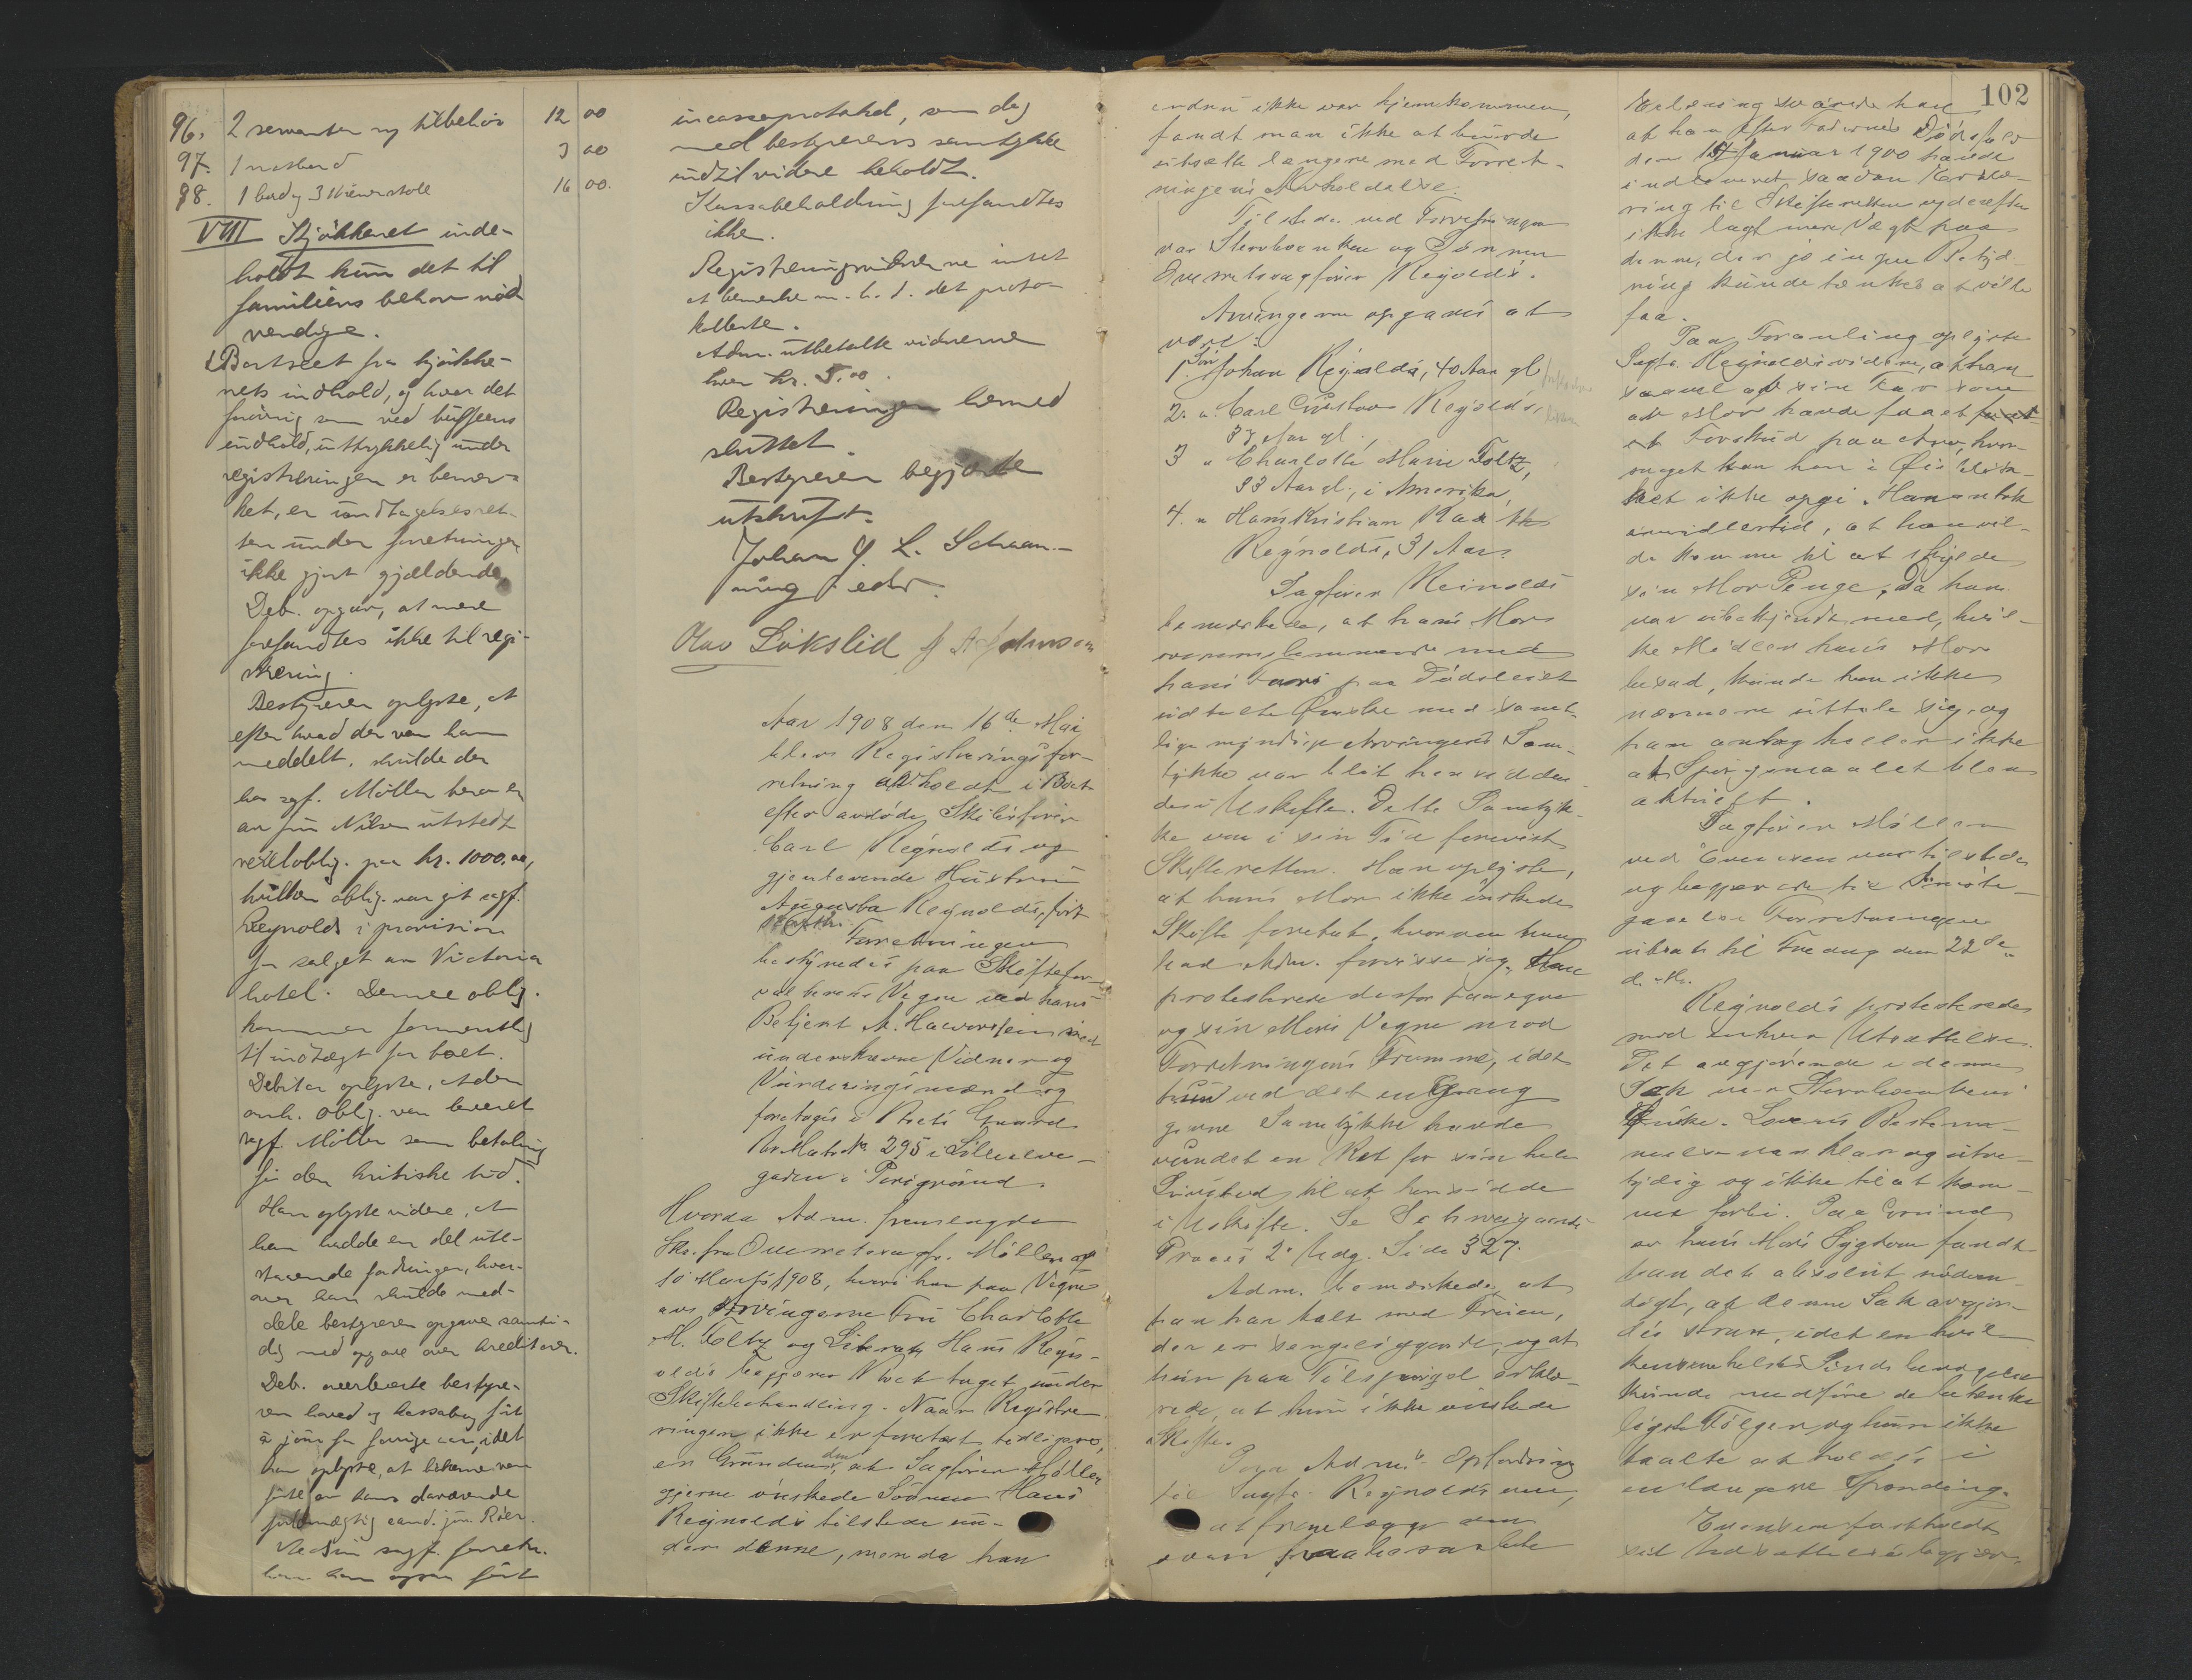 96. 2 servanter og tilbehör 12 00
97. 1 natbord 3 00
98. 1 bord og 3 Wienerstole 16 00.
VIII Kjökkenet inde-
holdt kun det til
familiens behov nöd
vendige.
Bortseet fra kjökke-
nets indhold, og hvor det
forövrig som ved buffeens
indhold, uttrykkelig under
registreringen er bemer-
ket, er undtagelsesret-
ten under forretningen
ikke gjort gjældende.
Deb. opgav, at mere
forfandtes ikke til regi-
strering.
Bestyreren oplyste, at
efter hvad der var ham
meddelt, skulde der
hos sagf. Möller bero en
av fru Nilsen utstedt
oblig. paa kr. 1000.00,
hvilken oblig. var git sagf.
Reynolds i provision
for salget av Victoria
hotel. Denne oblig.
kommer formentlig
til indtægt for boet.
Debitor oplyste, at den
omh. oblig. var leveret
sagf. Möller som betaling
för den kritiske tid.
Han oplyste videre, at
han hadde en del ute-
staaende fordringer, hvor-
over han skulde med-
dele bestyreren opgave samti-
dig med opgave over kreditorer.
Deb. overleverte bestyre-
ren hoved og kassabog fört
à jour for forrige aar, idet
han oplyste, at bökerne var
fört av hans daværende
fuldmægtig cand. jur. Röer.
Ved sin sagf. forretn.
har han ogsaa fört
incassoprotokol, som dog
med bestyrerens samtykke
indtil videre beholdt.
Kassabeholdning forefandtes
ikke.
Registreringsvidnerne intet
at bemerke m. h. t. det proto-
kollerte.
Adm. utbetalte vidnerne
hver kr. 5.00.
Registreringen hermed
sluttet.
Bestyreren begjærte
utskrift.
Johan L. Schaan-
ning edr.
Olav Lökslid A Johnsen
Aar 1908 den 16de Mai
blev Registreringsfor-
retning avholdt i Boet
efter avdöde Skibsförer
Carl Reynolds og
gjenlevende Hustru
Augusta Reynolds, födt
Forretningen
bestyredes paa Skiftefor-
valterens Vegne ved hans
Betjent A. Halvorsen med
underskrevne Vidner og
Vurderingsmænd og
foretages i Boets Gaard
Mat. No 295 i Lilleelve-
gaden i Porsgrund.
Hvorda Adm. fremlagde
Skr. fra Overretssagf. Möller af
10 Marts 1908, hvori han paa Vegne
av Arvingerne Fru Charlotte
M. Foltz og Literat Hans Reyn-
olds begjærer Boet taget under
Skiftebehandling. Naar Registre-
ringen ikke er foretat tidligere,
er Grunden den, at Sagförer Möller
gjerne önskede Sönnen Hans
Reynolds tilstede un-
der denne, men da han
102
endnu ikke var hjemkommen,
fandt man ikke at burde
utsætte længere med Forret-
ningens Avholdelse.
Tilstede ved Forretningen
var Stervboenken og Sönnen
Overretssagförer Reynolds.
Arvingerne opgaves at
være:
1. Sön Johan Reynolds, 40 Aar gl.
2. " Carl Gustav Reynolds,
37 Aar gl.
3 " Charlotte Marie Foltz,
33 Aar gl., i Amerika,
4. " Hans Kristian
Reynolds, 31 Aar.
Sagförer Reinolds
bemærkede, at hans Mor
overensstemmende med
hans Fars paa Dödsleiet
udtalte Önske med samt-
lige myndige Arvingers Sam-
tykke var blit hensidden-
des i Uskifte. Dette Samtyk-
ke var i sin Tid forevist
Skifteretten. Han oplyste,
at hans Mor ikke önskede
Skifte foretat, hvorom han
bad Adm. forvisse sig. Han
protesterede derfor paa egne
og sin Mors Vegne mod
Forretningens Fremme, idet
hun ved det en Gang
givne Samtykke havde
vundet en Ret for sin hele
Livstid til at hensidde
i Uskifte. Se Schweigaards
Proces 2. Udg. Side 327.
Adm. bemærkede, at
han har talt med Fruen,
der er sengeliggende, og at
hun paa Tilspörgsel erklæ-
rede, at hun ikke önskede
Skifte.
Paa Adm.s Opfordring
til Sagf. Reynolds om,
at fremlægge den
ovenfor paaberaabte
Erklæring svarede han
at han efter Faderens Dödsfald
den 14 Januar 1900 havde
indleveret saadan Erklæ-
ring til Skifteretten og derefter
ikke lagt mere Vægt paa
denne, der jo ingen Betyd-
ning kunde tænkes at ville
faa.
Paa Foranling oplyste
Sagf. Reynolds videre, at han
saavel af sin Far som
av Mor havde faaet
et Forskud paa Arv, hvor-
meget kan han i Öieblik-
ket ikke opgi. Han antok
imidlertid, at han vil-
de komme til at skylde
sin Mor Penge. Da han
var ubekjendt med, hvil-
ke Midler hans Mor
besad, kunde han ikke
nærmere uttale sig og
han antog heller ikke
at Spörgsmaalet blev
aktuelt.
Sagförer Möller
ved Evensen var tilstede
og begjærede
Forretningen
utsat til Fredag den 22de
d. M.
Reynolds protesterede
mod enhver Utsættelse.
Det avgjörende i denne
Sak var Stervboenkens
Önske. Lovens Bestem-
melse var klar og utve-
tydig og ikke til at kom-
me forbi. Paa Grund
av hans Mors Sygdom fandt
han det absolut nödven-
digt, at denne Sak avgjör-
des strax, idet en hvil-
kensomhelst Sindsbevægelse
kunde medföre de betænke-
ligste Fölger og hun ikke
taalte at holdes i
en længere Spænding.
Evensen fastholdt
sit Utsættelsesbegjær-